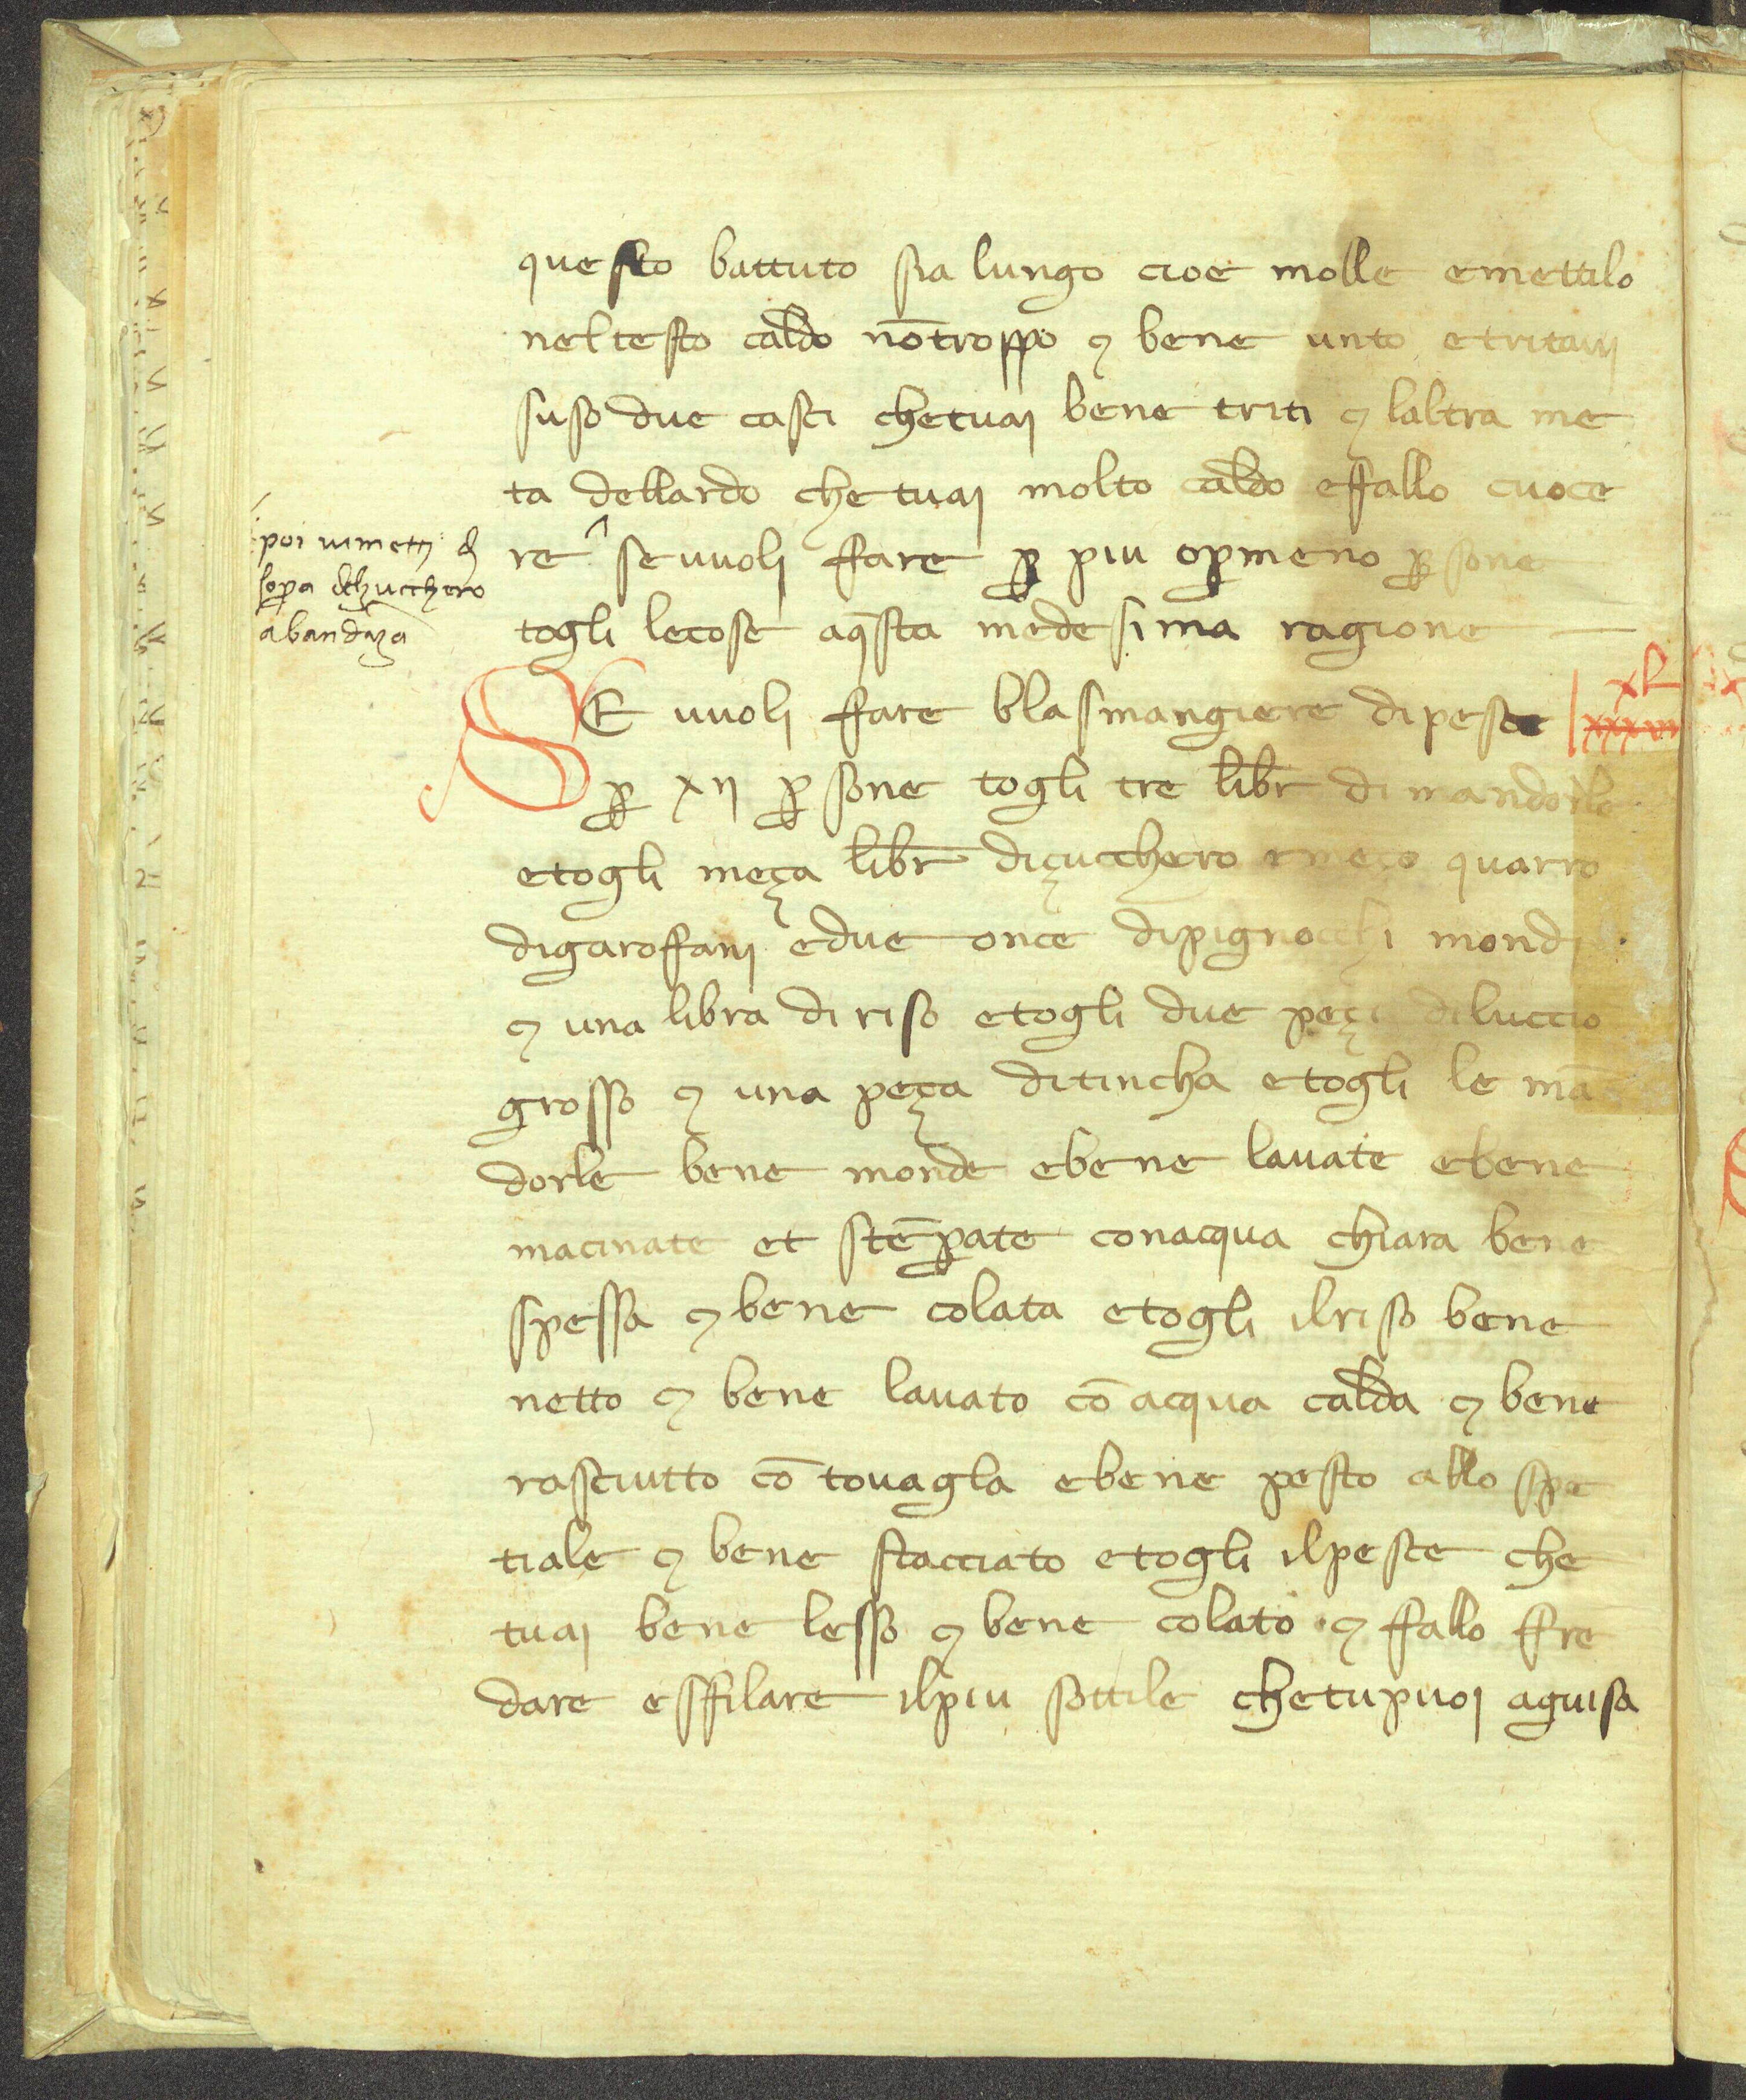 questo battuto sia lungo cioe molle emettilo
neltesto caldo nōtroppo ⁊ bene unto etritavi
suso due casci chetuaj bene triti ⁊ laltra me
ta dellardo che tuaj molto caldo effallo cuoce
re ^ seuuolj ffare ꝑ piu oꝑmeno ꝑsone
togli lecose aq̄sta medesima ragione —
poi vimetti di
soꝑa del zucchero
abandāza
SE vuolj ffare blasmangiere dipesce
xl
xxxviii
ꝑ xij ꝑsone togli tre libr̄ di mandorle
etogli meça libr̄ diçucchero emeço quarro
digaroffanj edue once dipignocchi mondi
⁊ una libra di riso etogli due peçi diluccio
grosso ⁊ una peça ditincha etogli le mā
dorle bene monde ebene lauate ebene
macinate et stēꝑate conacqua chiara bene
spessa ⁊ bene colata etogli ilriso bene
netto ⁊ bene lauato cō acqua calda ⁊ bene
rasciutto cō touagla ebene pesto allo spe
tiale ⁊ bene stacciato etogli ilpesce che
tuaj bene lesso ⁊ bene colato ⁊ ffallo ffre
dare esffilare ilpiu sottile chetupuoj aguisa